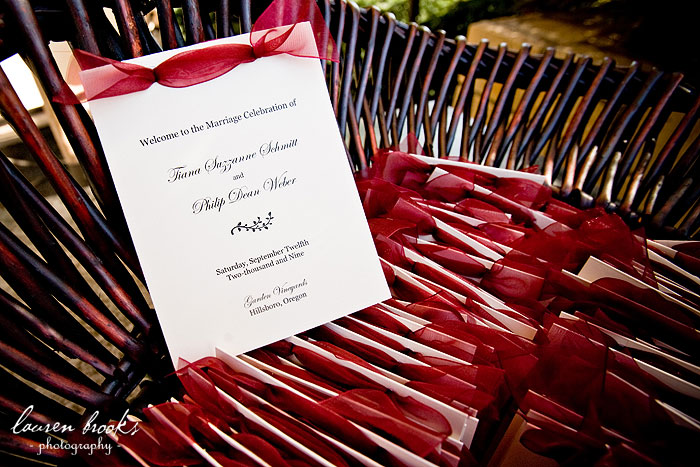 Welcome to the Marriage Celebration of
Tiana Suzzanne Schmitt
and
Philip Dean Weber
Saturday, September Twelfth
Two-thousand and Nine
Garden Vineyards
Hillsboro, Oregon
lauren brooks
- photography -